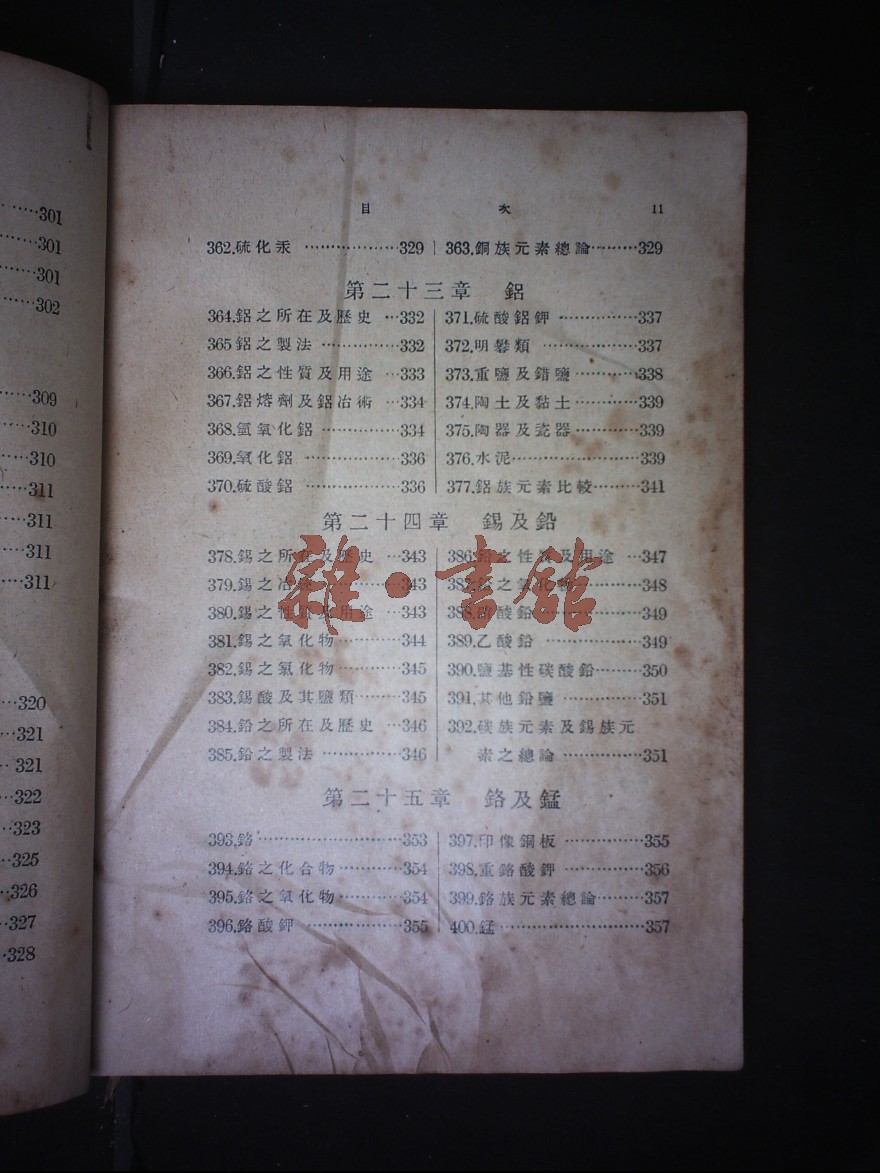 301
301
301
302
309
310
310
311
311
311
311
320
321
321
322
323
325
326
327
328
目 次 11
362.硫化汞 ··················329
363.銅族元素總論·········329
第二十三章 鋁
364.鋁之所在及歷史 ···332
365鋁之製法 ···············332
366.鋁之性質及用途 ···333
367.鋁熔劑及鋁冶術 ···334
368.氫氧化鋁 ···············334
369.氧化鋁 ··················336
370.硫酸鋁 ··················336
371.硫酸鋁鉀 ···············337
372.明礬類 ··················337
373.重鹽及錯鹽············338
374.陶土及黏土············339
375.陶器及瓷器············339
376.水泥························339
377.鋁族元素比較·········341
第二十四章 錫及鉛
378.錫之所在及歷史 ···343
379.錫之冶 ···············343
380.錫之性質及用途 ···343
381.錫之氧化物············344
382.錫之氯化物············345
383.錫酸及其鹽類·········345
384.鉛之所在及歷史 ···346
385.鉛之製法 ···············346
386.鉛之性質及用途 ···347
387.鉛之氧化物············348
388.硝酸鉛 ··················349
389.乙酸鉛 ··················349
390.鹽基性碳酸鉛·········350
391.其他鉛鹽 ···············351
392.碳族元素及錫族元
素之總論 ···············351
第二十五章 鉻及錳
393.鉻···························353
394.鉻之化合物············354
395.鉻之氧化物············354
396.鉻酸鉀 ··················355
397.印像銅板 ···············355
398.重鉻酸鉀 ···············356
399.鉻族元素總論·········357
400.錳···························357
雜·書館